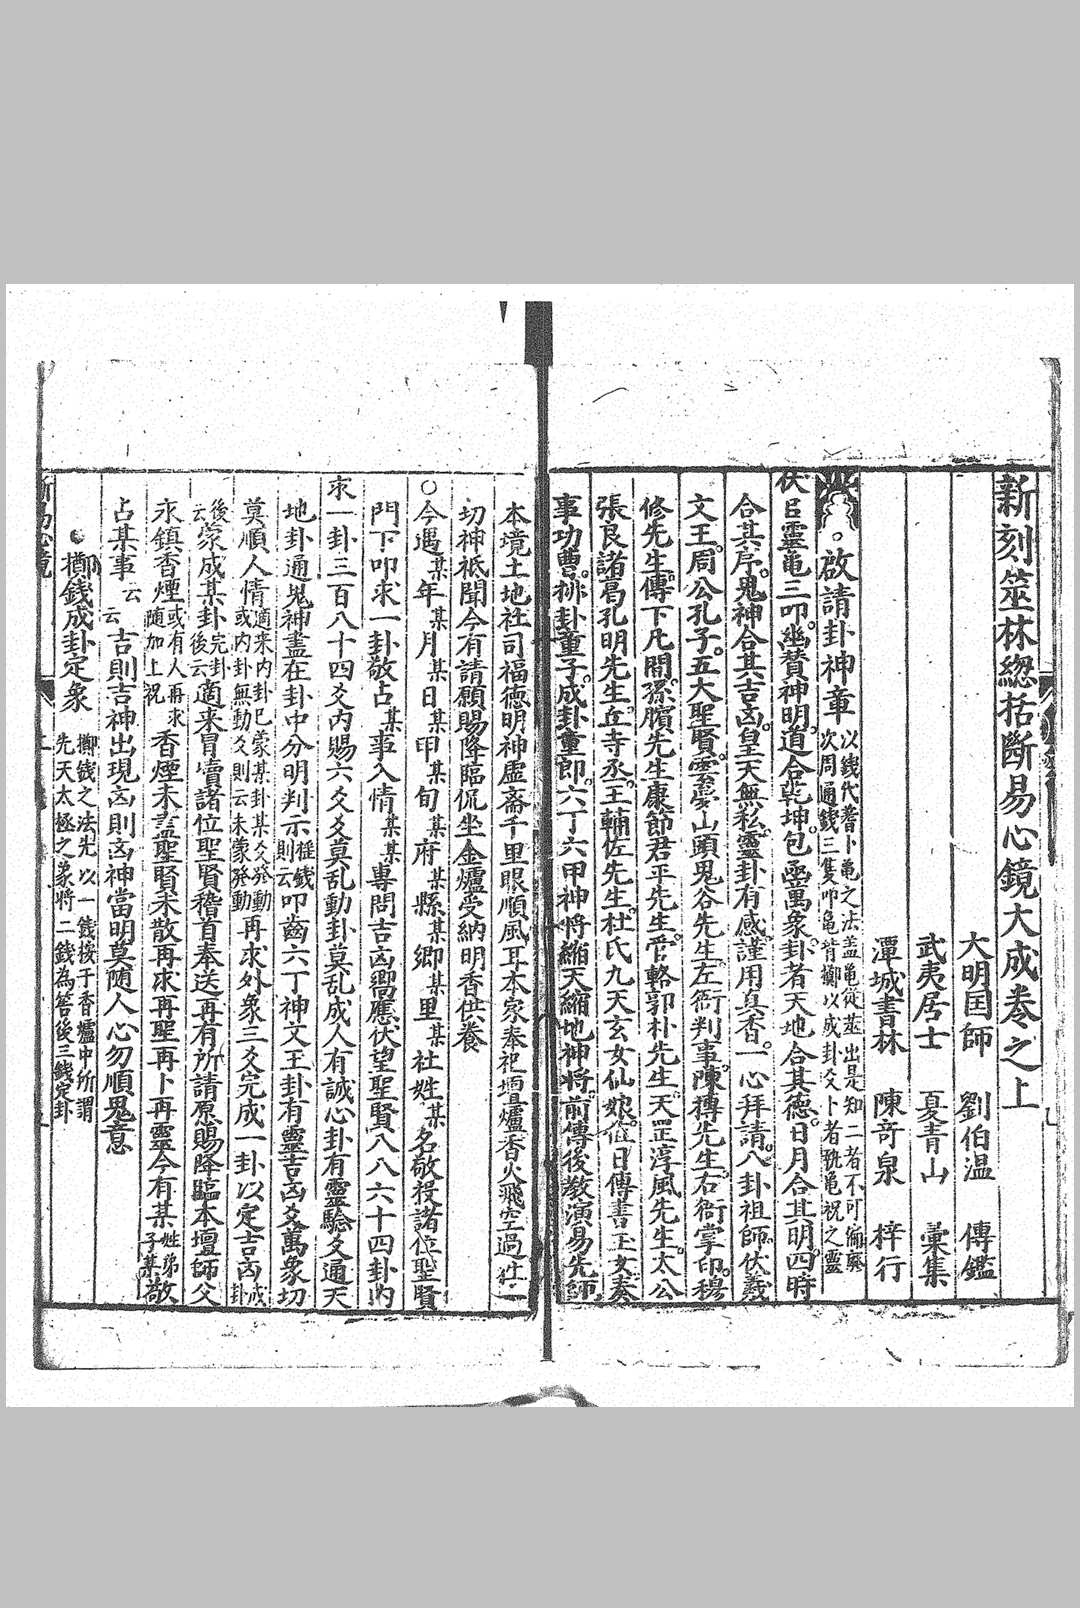 新刻筮林總括斷易心鏡大成卷之上
大明国師 劉伯温 傳鑑
武夷居士 夏青山 彙集
潭城書林 陳奇泉 梓行
。啟請卦神章 以錢代蓍卜龜之法盖龜從筮出是知二者不可偏廢
次周通錢三隻叩龜背擲以成卦爻卜者執龜祝之靈
伏𠮷靈龜三叩。幽賛神明。道合乾坤。包凾萬象。卦者天地合其德。日月合其明。四時
合其序。鬼神合其吉凶。皇天無私。靈卦有感。謹用真香。一心拜請。八卦祖師。伏羲
文王。周公孔子。五大聖賢。雲夢山頭鬼谷先生。左衙判事。陳摶先生。右衙掌印。穆
修先生。傳下凡間。孫臏先生。康節君平先生。管輅郭朴先生。天罡淳風先生。太公
張良諸葛孔明先生。丘寺丞。王輔佐先生。杜氏九天玄女仙娘。值日傳書玉女。奏
事功曹。排卦童子。成卦童郎。六丁六甲神将。縮天縮地神將。前傳後教演易先師
本境土地社司福德明神虛齋千里眼順風耳本家奉祀壇爐香火飛空過往一
切神祇聞今有請願賜降臨侃坐金爐受納明香供養
○今遇某年某月某日某甲某旬某府某縣某鄉某里某社姓某名敬投諸位聖賢
門下叩求一卦敬占某事入情某某專問吉凶嚮應伏望聖賢八八六十四卦内
求一卦三百八十四爻内賜六爻爻莫乱動卦莫乱成人有誠心卦有靈驗爻通天
地卦通鬼神盖在卦中分明判示擲錢則云叩齒六丁神文王卦有靈吉凶爻萬象切
莫順人情適来内卦已蒙某卦某爻發動或内卦無動爻則云未蒙發動再求外象三爻完成一卦以定吉凶成卦
後云蒙成某卦完卦後云適来冒凟諸位聖賢稽首奉送再有所請原賜降臨本壇師父
永鎮香煙或有人再求随加上祝香煙未盖聖賢未散再求再聖再卜再靈今有某姓弟子某敬
占某事云云吉則吉神出現凶則凶神當明莫随人心勿順鬼意
擲錢成卦定象 擲錢之法先以一錢按于香爐中所謂
先天太極之象將二錢為筶後三錢定卦